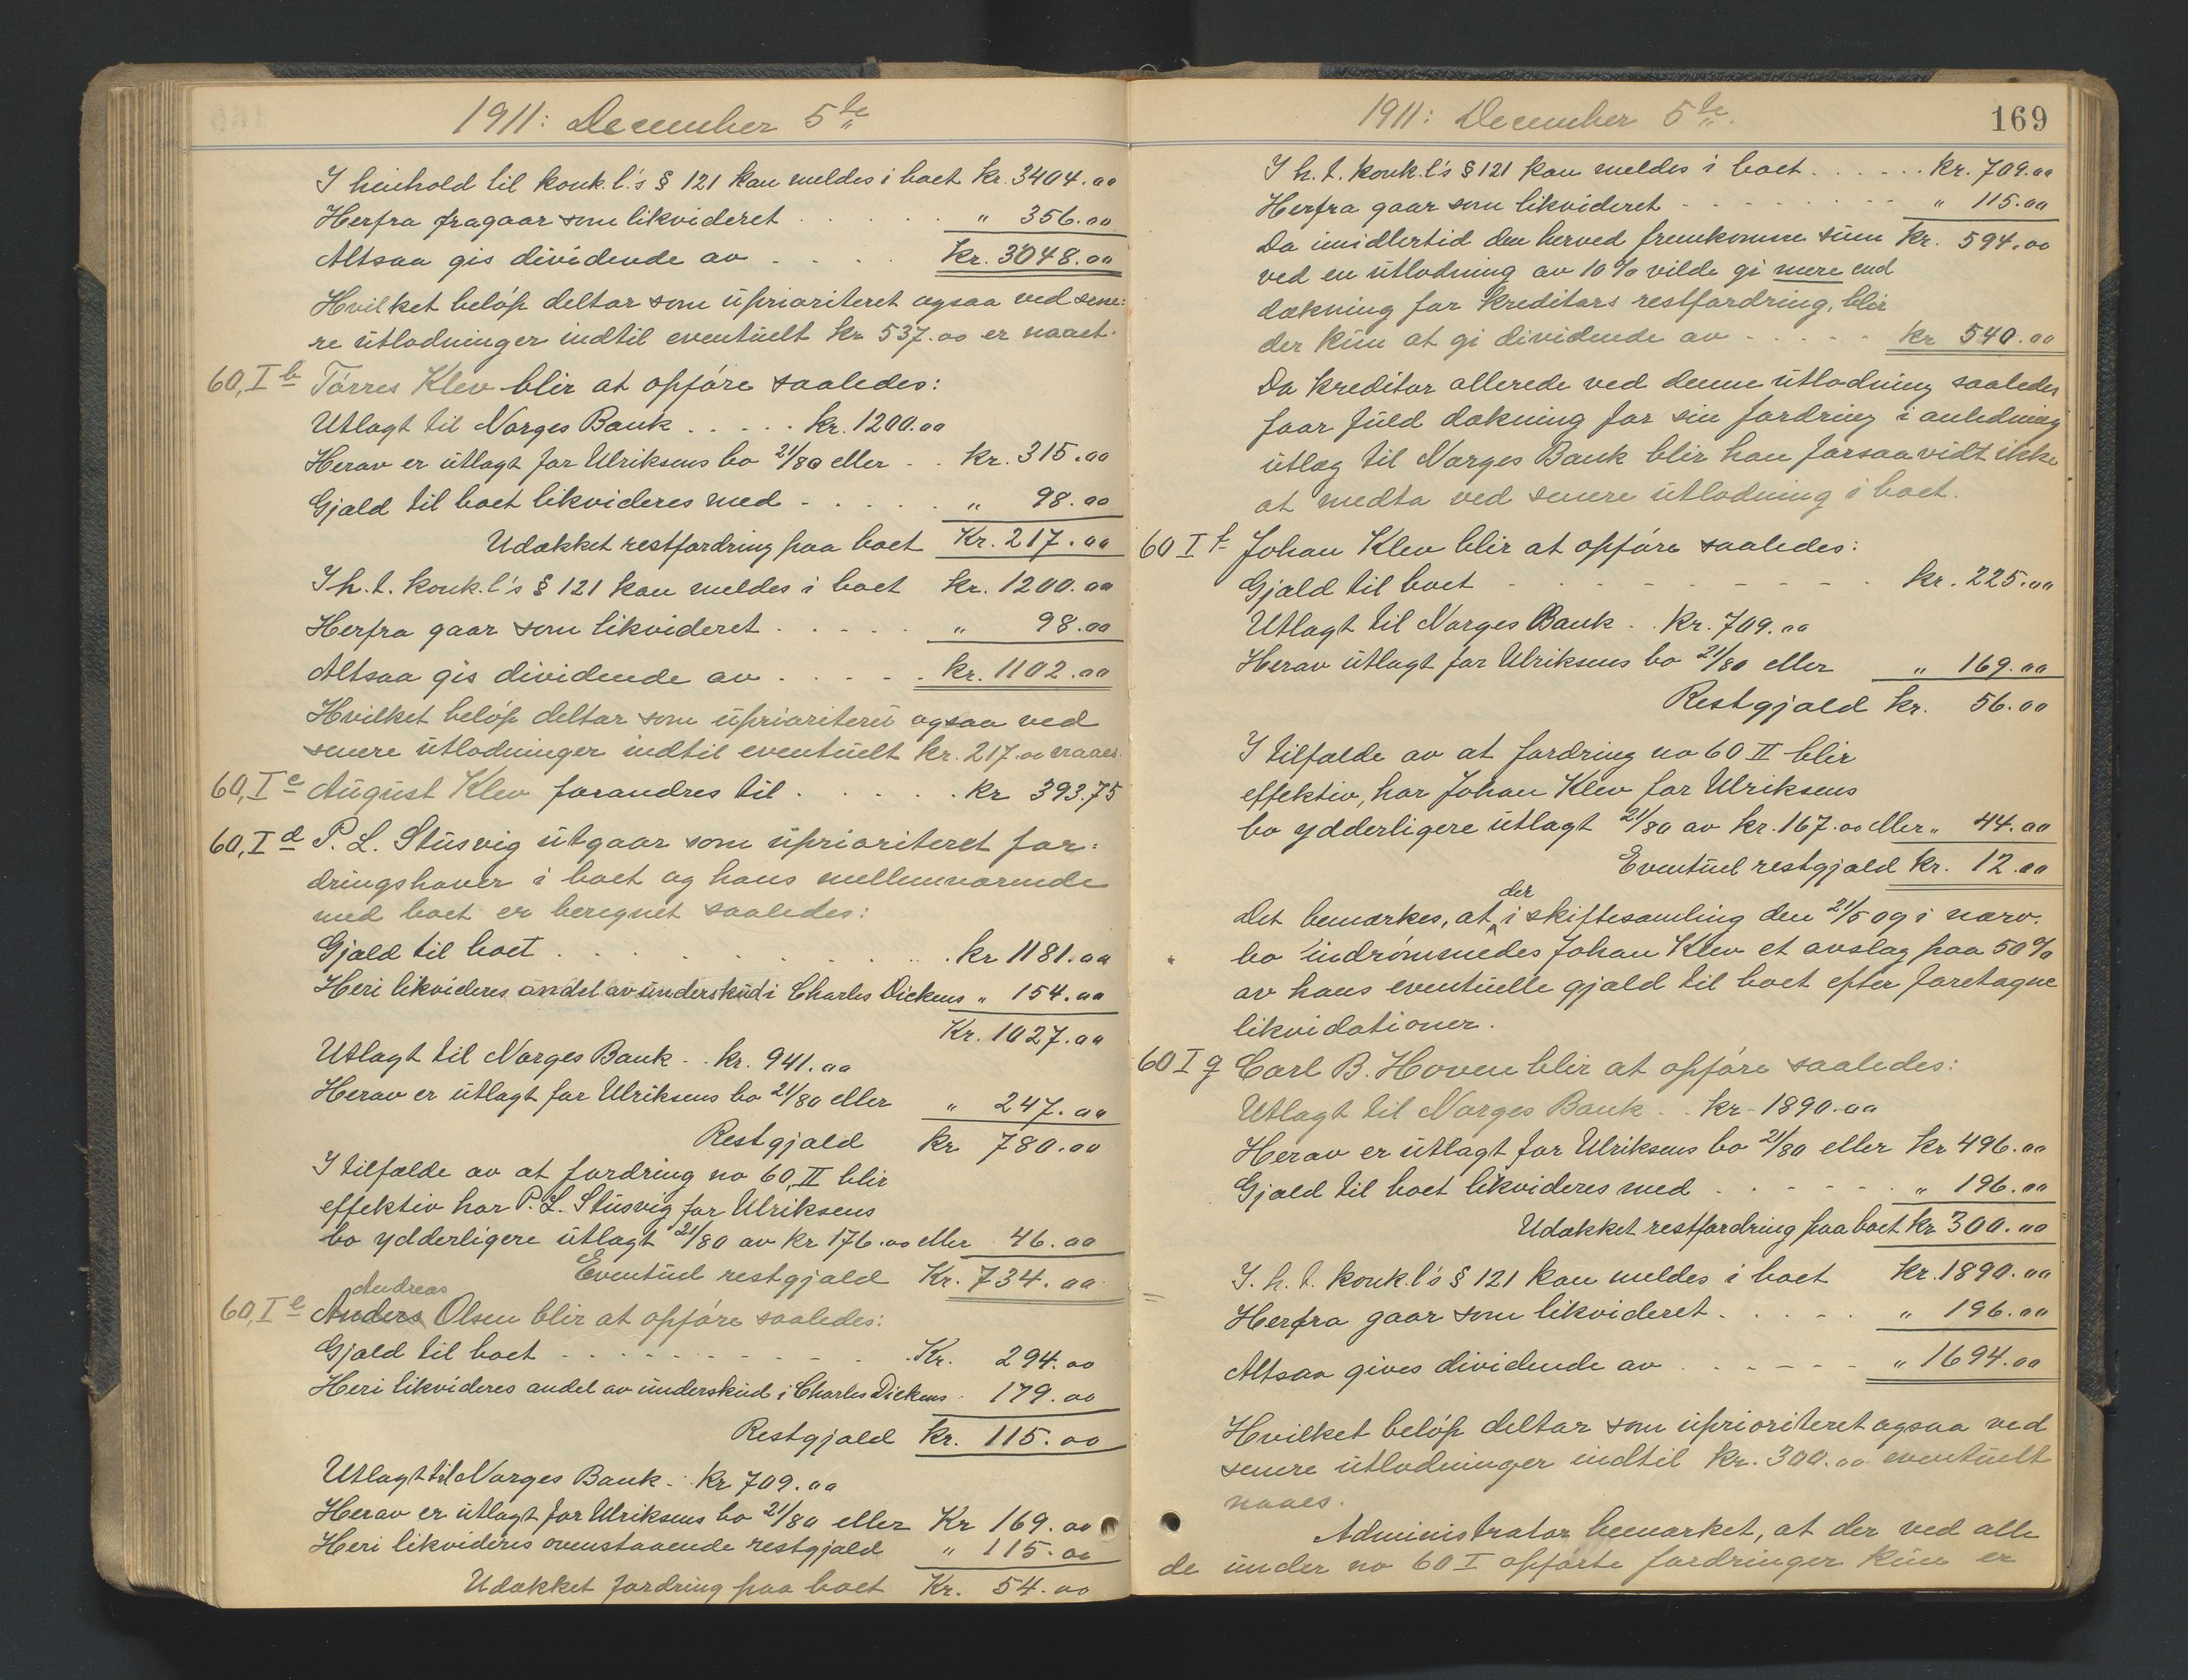 1911: December 5te
I henhold til konk.l.'s § 121 kan meldes i boet kr. 3404.00
Herfra fragaar som likvideret . . . . . " 356.00
Altsaa gis dividende av . . . . kr. 3048.00
Hvilket beløp deltar som uprioriteret ogsaa ved sene:
re utlodninger indtil eventuelt kr 537.00 er naaet.
60, I b Tørres Klev blir at opføre saaledes:
Utlagt til Norges Bank . . . . . kr. 1200.00
Herav er utlagt for Ulriksens bo 21/80 eller . . kr. 315.00
Gjæld til boet likvideres med . . . . . " 98.00
Udækket restfordring paa boet Kr. 217.00
I h. t. konk.l's § 121 kan meldes i boet kr. 1200.00
Herfra gaar som likvideret . . . . . " 98.00
Altsaa gis dividende av . . . . . kr. 1102.00
Hvilket beløp deltar som uprioriteret ogsaa ved
senere utlodninger indtil eventuelt kr. 217.00 naaes.
60, I c August Klev forandres til . . . . . . kr 393.75
60, I d P. L. Stusvig utgaar som uprioriteret for:
dringshaver i boet og hans mellemværende
med boet er beregnet saaledes:
Gjæld til boet . . . . . . . . . . . kr 1181.00
Heri likvideres andel av underskud i Charles Dickens " 154.00
Kr. 1027.00
Utlagt til Norges Bank . . kr. 941.00
Herav er utlagt for Ulriksens bo 21/80 eller " 247.00
Restgjæld kr 780.00
I tilfælde av at fordring no 60, II blir
effektiv har P. L. Stusvig for Ulriksens
bo ydderligere utlagt 21/80 av kr 176.00 eller 46.00
Eventuel restgjæld Kr. 734.00
Andreas
60, I e Anders Olsen blir at opføre saaledes:
Gjæld til boet . . . . . . . . . . Kr. 294.00
Heri likvideres andel av underskud i Charles Dickens . 179.00
Restgjæld kr. 115.00
Utlagt til Norges Bank . . kr 709.00
Herav er utlagt for Ulriksens bo 21/80 eller Kr 169.00
Heri likvideres ovenstaaende restgjæld " 115.00
Udækket fordring paa boet Kr. 54.00
1911: December 5te.
169
I h. t. konk.l's § 121 kan meldes i boet . . . . . . kr. 709.00
Herfra gaar som likvideret . . . . . . . . . " 115.00
Da imidlertid den herved fremkomne sum kr. 594.00
ved en utlodning av 10 % vilde gi mere end
dækning for kreditors restfordring, blir
der kun at gi dividende av . . . . . kr 540.00
Da kreditor allerede ved denne utlodning saaledes
faar fuld dækning for sin fordring i anledning
utlæg til Norges Bank blir han forsaavidt ikke
at medta ved senere utlodning i boet.
60 I f Johan Klev blir at opføre saaledes:
Gjæld til boet . . . . . . . . . . kr. 225.00
Utlagt til Norges Bank . . Kr. 709.00
Herav utlagt for Ulriksens bo 21/80 eller " 169.00
Restgjæld kr. 56.00
I tilfælde av at fordring no 60 II blir
effektiv, har Johan Klev for Ulriksens
bo ydderligere utlagt 21/80 av kr. 167.00 eller " 44.00
Eventuel restgjæld kr. 12.00
der
Det bemærkes, at i skiftesamling den 21/5 09 i nærv.
bo indrømmedes Johan Klev et avslag paa 50 %
av hans eventuelle gjæld til boet efter foretagne
likvidationer.
60 I g Carl B. Hoven blir at opføre saaledes:
Utlagt til Norges Bank . . kr 1890.00
Herav er utlagt for Ulriksens bo 21/80 eller kr 496.00
Gjæld til boet likvideres med . . . . . . " 196.00
Udækket restfordring paa boet kr 300.00
I. h. t. konk.l's § 121 kan meldes i boet kr. 1890.00
Herfra gaar som likvideret . . . . . " 196.00
Altsaa gives dividende av . . . . . . " 1694.00
Hvilket beløp deltar som uprioriteret ogsaa ved
senere utlodninger indtil kr. 300.00 eventuelt
naaes.
Administrator bemærket, at der ved alle
de under no 60 I opførte fordringer kun er